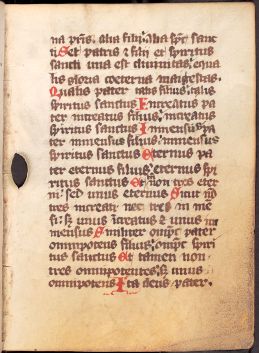 na pris. alia filii: alia spc sanc
ti Set patris & filii et spiritus
sancti una est diuinitas: equa
lis gloria coeterna maiestas.
Qualis pater talis filius: talis
spiritus sanctus Increatus pa
ter increatus filius: increatus
spiritus sanctus Inmensus pa
ter inmensus filius: inmensus
spiritus sanctus eternus pa
ter eternus filius: eternus spi
ritus sanctus Et non tres eter
ni: sed unus eternus Sicut nō
tres increati nec tres in me
si: sz unus icreatus & unus in
mensus Similiter omps pater
omnipotens filius: omps spiri
tus sanctus Et tamen non
tres omnipotentes: sz unus
omnipotens Ita deus pater.